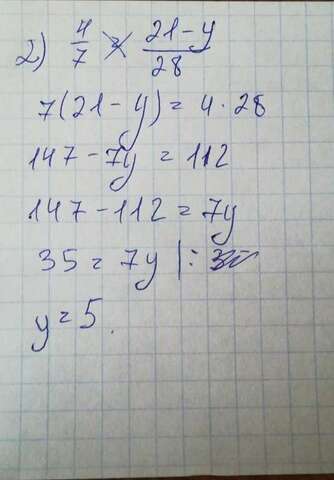 2) 4/7 = (21-y)/28
7(21-y) = 4·28
147-7y = 112
147-112 = 7y
35 = 7y |:
y = 5.